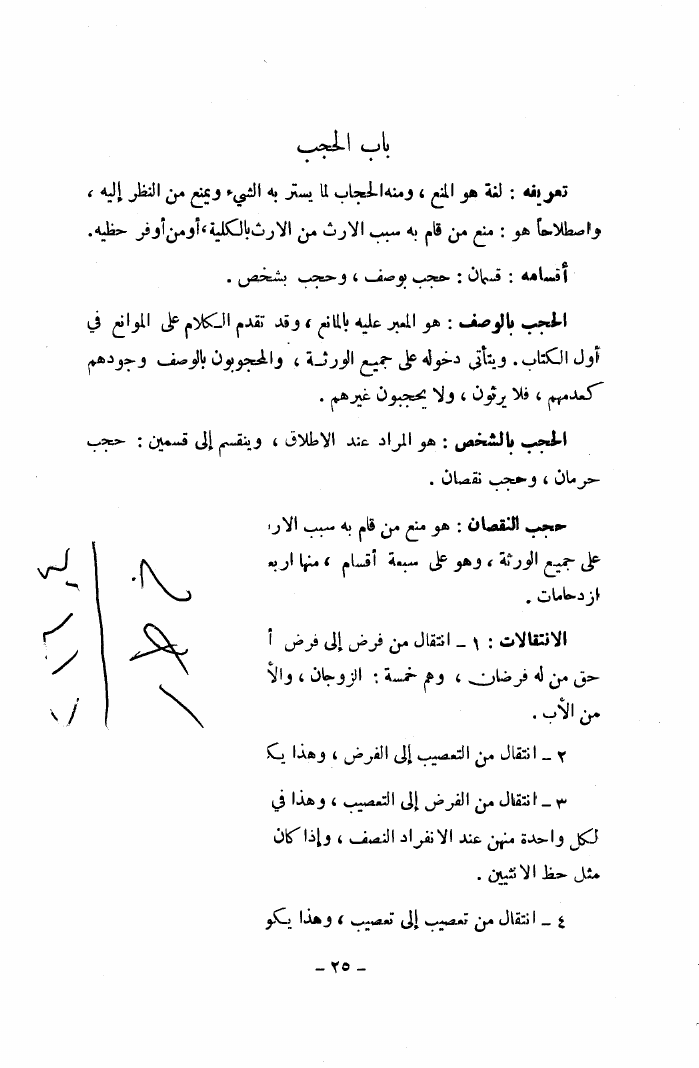 باب الحجب
تعريفه : لغة هو المنع ، ومنه الحجاب لما يستر به الشيء ويمنع من النظر إليه ،
واصطلاحاً هو : منع من قام به سبب الارث من الارث بالكلية ، أو من أوفر حظيه .
أقسامه : قسمان : حجب بوصف ، وحجب بشخص .
الحجب بالوصف : هو المعبر عليه بالمانع ، وقد تقدم الكلام على الموانع في
أول الكتاب . ويتأتى دخوله على جميع الورثة ، والمحجوبون بالوصف وجودهم
كعدمهم ، فلا يرثون ، ولا يحجبون غيرهم .
الحجب بالشخص : هو المراد عند الاطلاق ، وينقسم إلى قسمين : حجب
حرمان ، وحجب نقصان .
حجب النقصان : هو منع من قام به سبب الار
على جميع الورثة ، وهو على سبعة أقسام ، منها اربع
ازدحامات .
الانتقالات : ١ ـ انتقال من فرض إلى فرض أ
حق من له فرضان ، وهم خمسة : الزوجان ، والأ
من الأب .
٢ ـ انتقال من التعصيب إلى الفرض ، وهذا يك
٣ ـ انتقال من الفرض إلى التعصيب ، وهذا في
لكل واحدة منهن عند الانفراد النصف ، وإذا كان
مثل حظ الانثيين .
٤ ـ انتقال من تعصيب إلى تعصيب ، وهذا يكو
ـ ٢٥ ـ